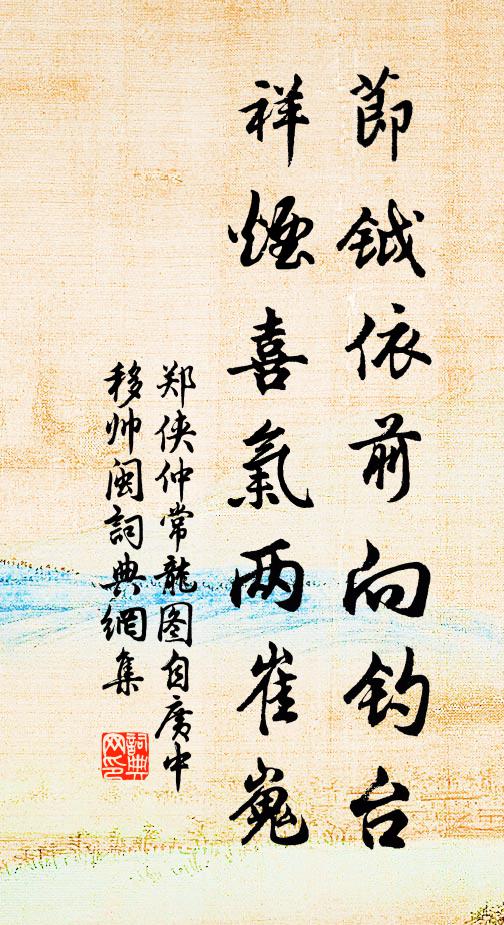 莭钺依前向钓台
祥煙喜氣两崔嵬
郑侠仲常龍图自廣中
移帅闽詞典網集
詞典网印